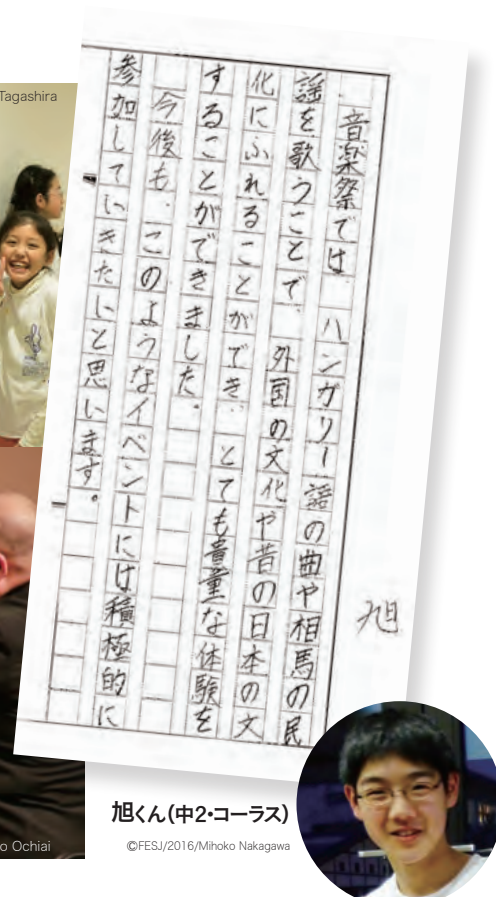 Tagashira
旭
音楽祭では、ハンガリー語の曲や相馬の民
謡を歌うことで、外国の文化や昔の日本の文
化にふれることができ、とても貴重な体験を
することができました。
今後も、このようなイベントには積極的に
参加していきたいと思います。
o Ochiai
旭くん(中2・コーラス)
©FESJ/2016/Mihoko Nakagawa